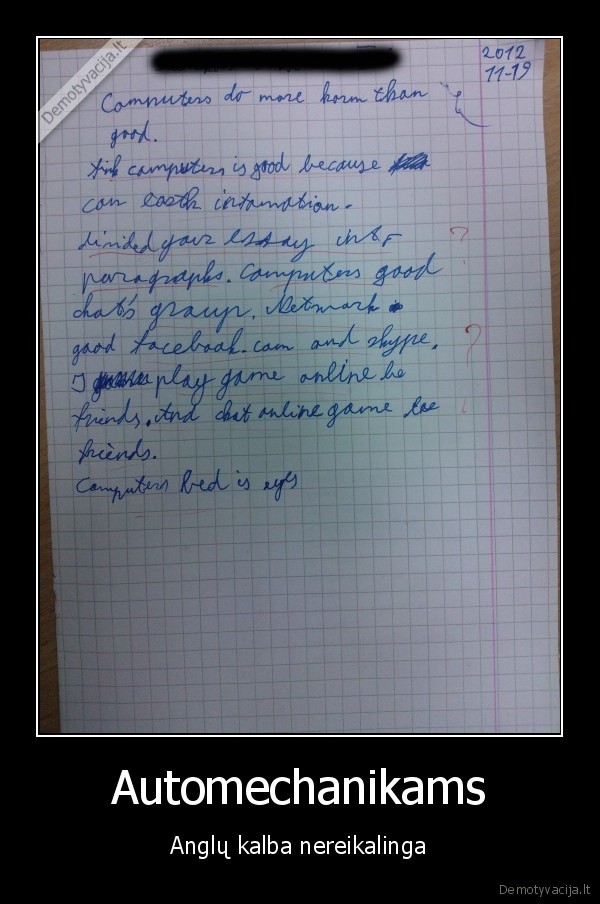 Demotyvacija.lt
2012
11-19
Computers do more horm than
good.
computers is good because
can intomotion.
divided your essay
paragraphs. Computers good
chat's group. Network
good facebook.com and skype.
I play game online be
friends. And chat online game
friends.
Computers is eyes
Automechanikams
Anglų kalba nereikalinga
Demotyvacija.lt